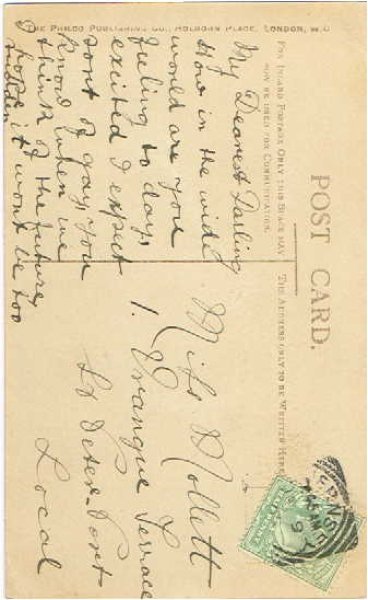 THE PHILCO PUBLISHING CO., HOLBORN PLACE, LONDON, W.C.
POST CARD.
FOR INLAND POSTAGE ONLY THIS SPACE MAY
NOW BE USED FOR COMMUNICATION.
THE ADDRESS ONLY TO BE WRITTEN HERE.
My Dearest Darling
How in the wide
world are you
feeling to day,
excited I expect
sort of gay, you
know when we
think of the future,
I hope it wont be too
sudden
Miss Mollett
1. Evangue Terrace
St Peter-Port
Local
GUERNSEY